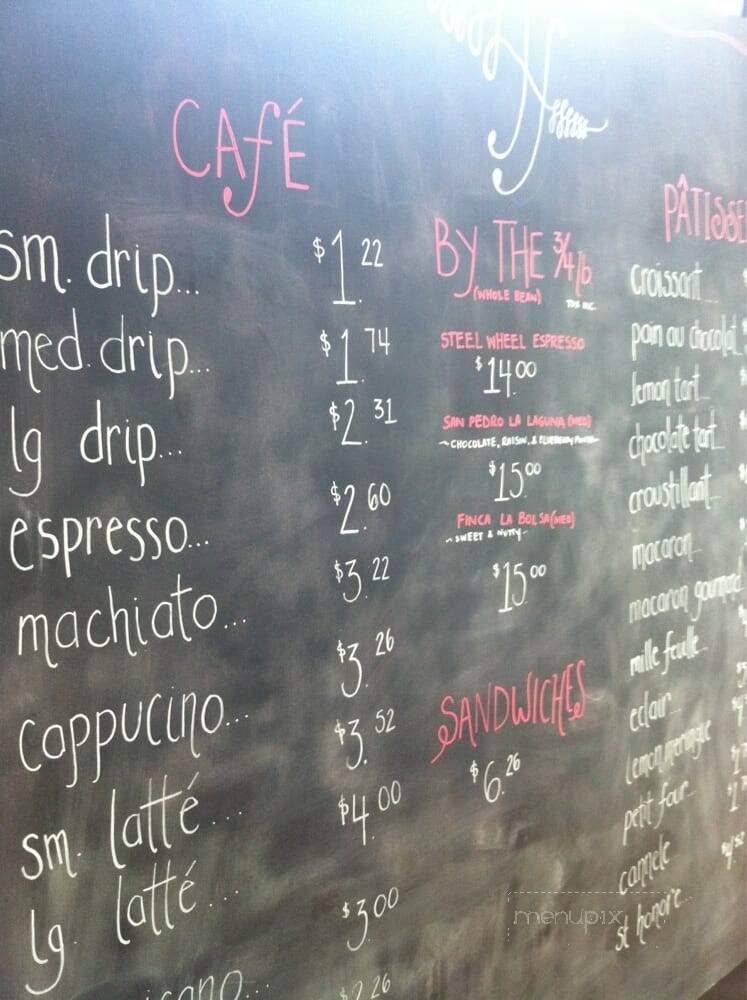 CAFÉ
sm. drip... $1.22
med. drip... $1.74
lg drip... $2.31
espresso... $2.60
machiato... $3.22
cappucino... $3.26
sm. latté... $3.52
lg. latté... $4.00
$3.00
BY THE 3/4 lb
(WHOLE BEAN)
STEEL WHEEL ESPRESSO
$14.00
SAN PEDRO LA LAGUNA (MED)
~CHOCOLATE, RAISIN, &
$15.00
FINCA LA BOLSA (MED)
~SWEET & NUTTY~
$15.00
SANDWICHES
$6.26
PÂTISSE
croissant...
pain au chocolat
lemon tart...
chocolate tart...
croustillant...
macaron...
macaron gourmand
mille feuille...
eclair...
lemon meringue
petit four...
cannele
st honore...
menupix